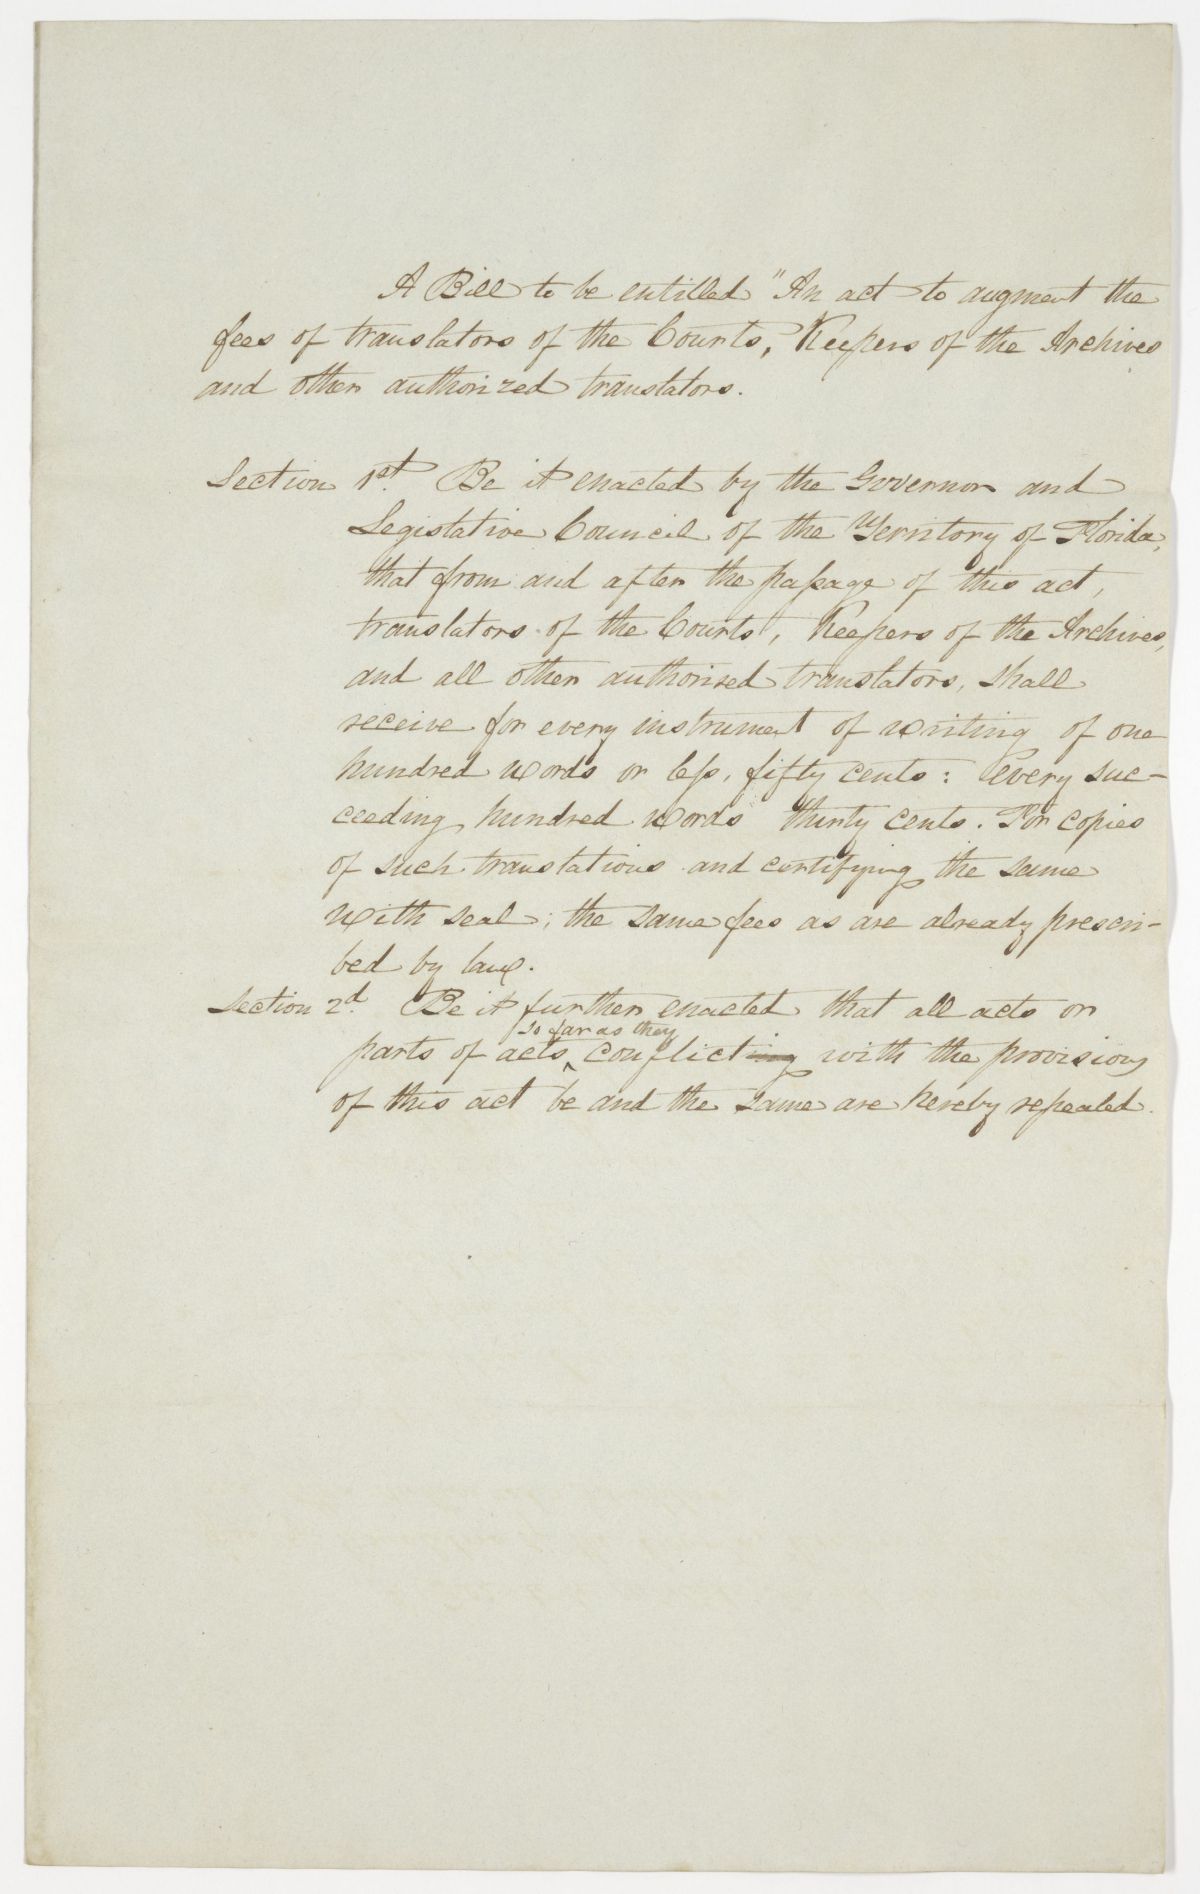 A Bill to be entitled "An act to augment the
fees of translators of the Courts, Keepers of the Archives
and other authorized translators.
Section 1st. Be it enacted by the Governor and
Legislative Council of the Territory of Florida,
that from and after the passage of this act,
translators of the Courts, Keepers of the Archives,
and all other authorised translators, shall
receive for every instrument of writing of one
hundred words or less, fifty cents: every suc-
ceeding hundred words thirty cents. For copies
of such translations and certifying the same
with seal; the same fees as are already prescri-
bed by law.
Section 2d. Be it further enacted that all acts or
so far as they
parts of acts ‸ conflicting with the provisions
of this act be and the same are hereby repealed.